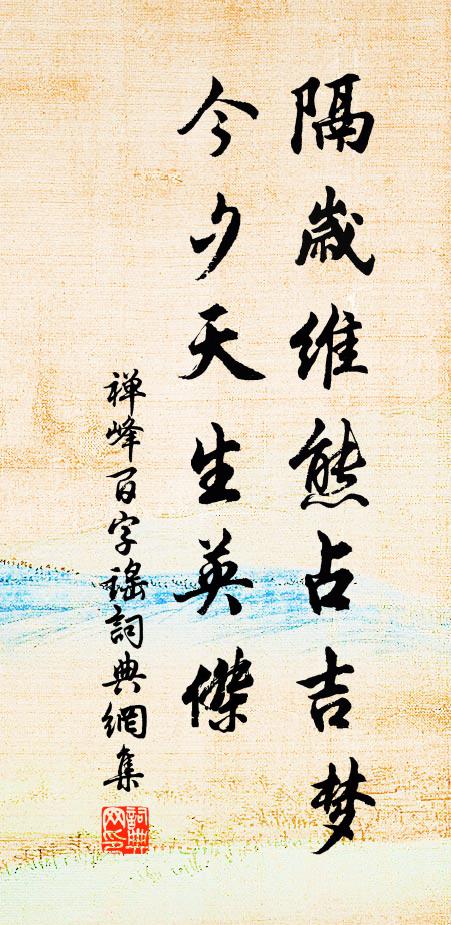 隔歲維熊占吉梦
今夕天生英傑
禅峰百字謠詞典網集
詞典网印